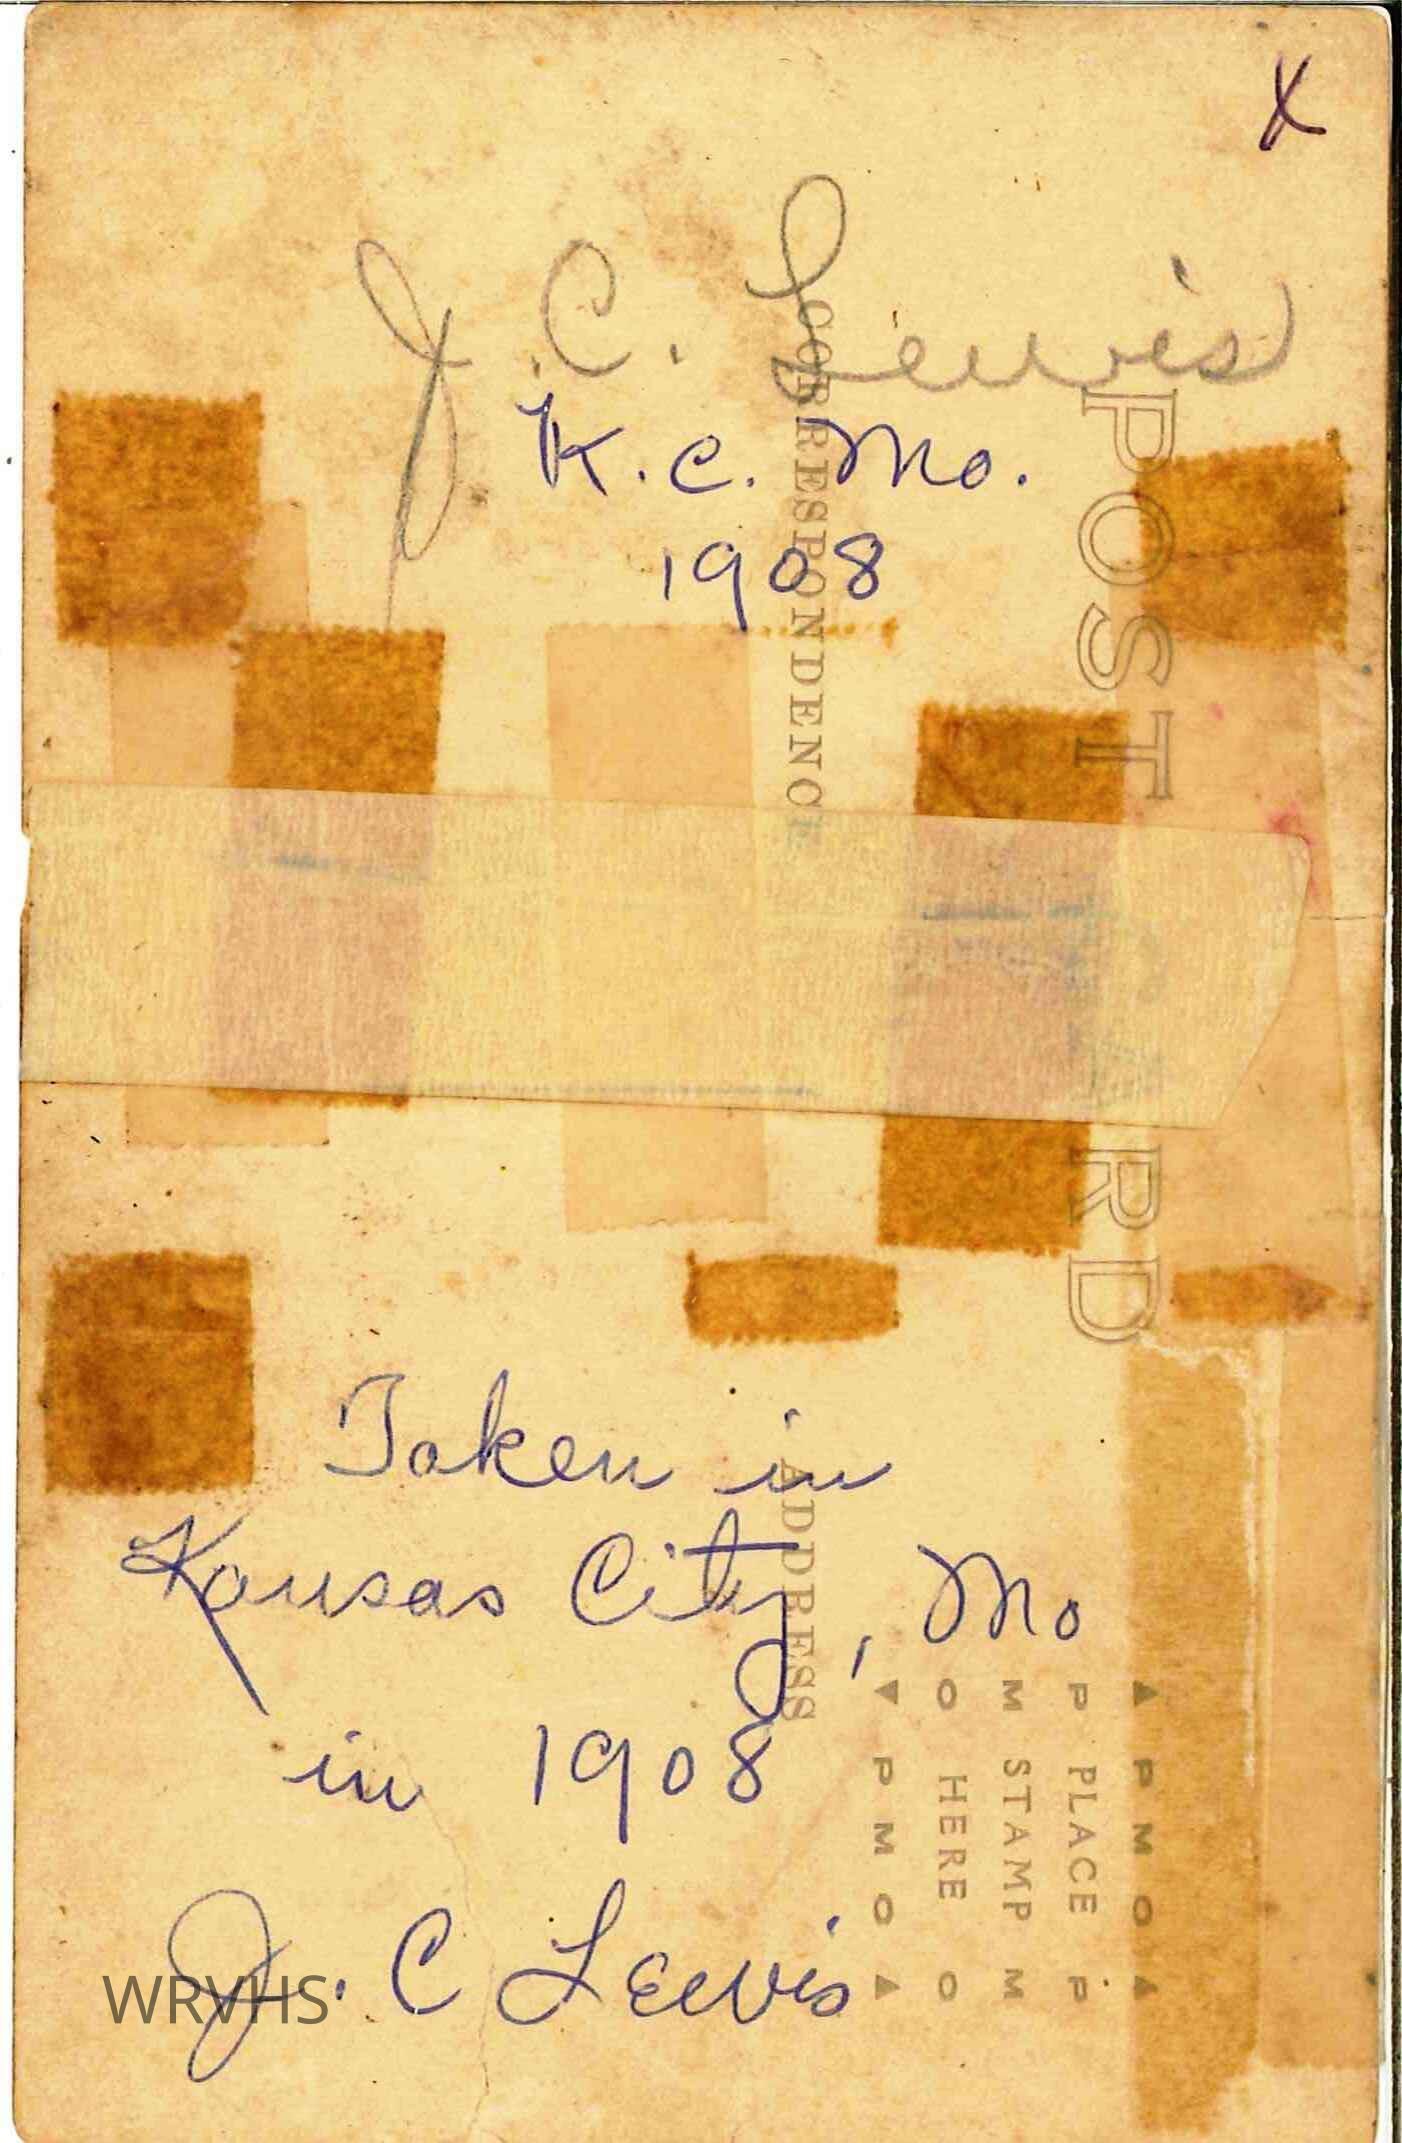 X
J. C. Lewis
K. C. Mo.
1908
POST CARD
CORRESPONDENCE
Taken in
Kansas City, Mo
in 1908
J. C Lewis
ADDRESS
▲ P M O ▲
P PLACE P
M STAMP M
O HERE O
▼ P M O ▲
WRVHS